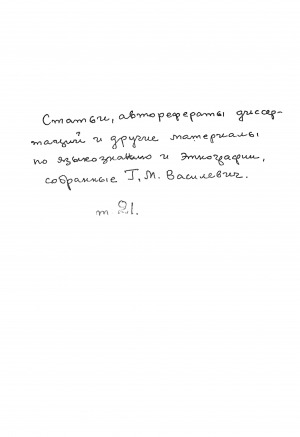 Статьи, авторефераты диссер-
таций и другие материалы
по языкознанию и этнографии,
собранные Г. М. Василевич.
т 21.